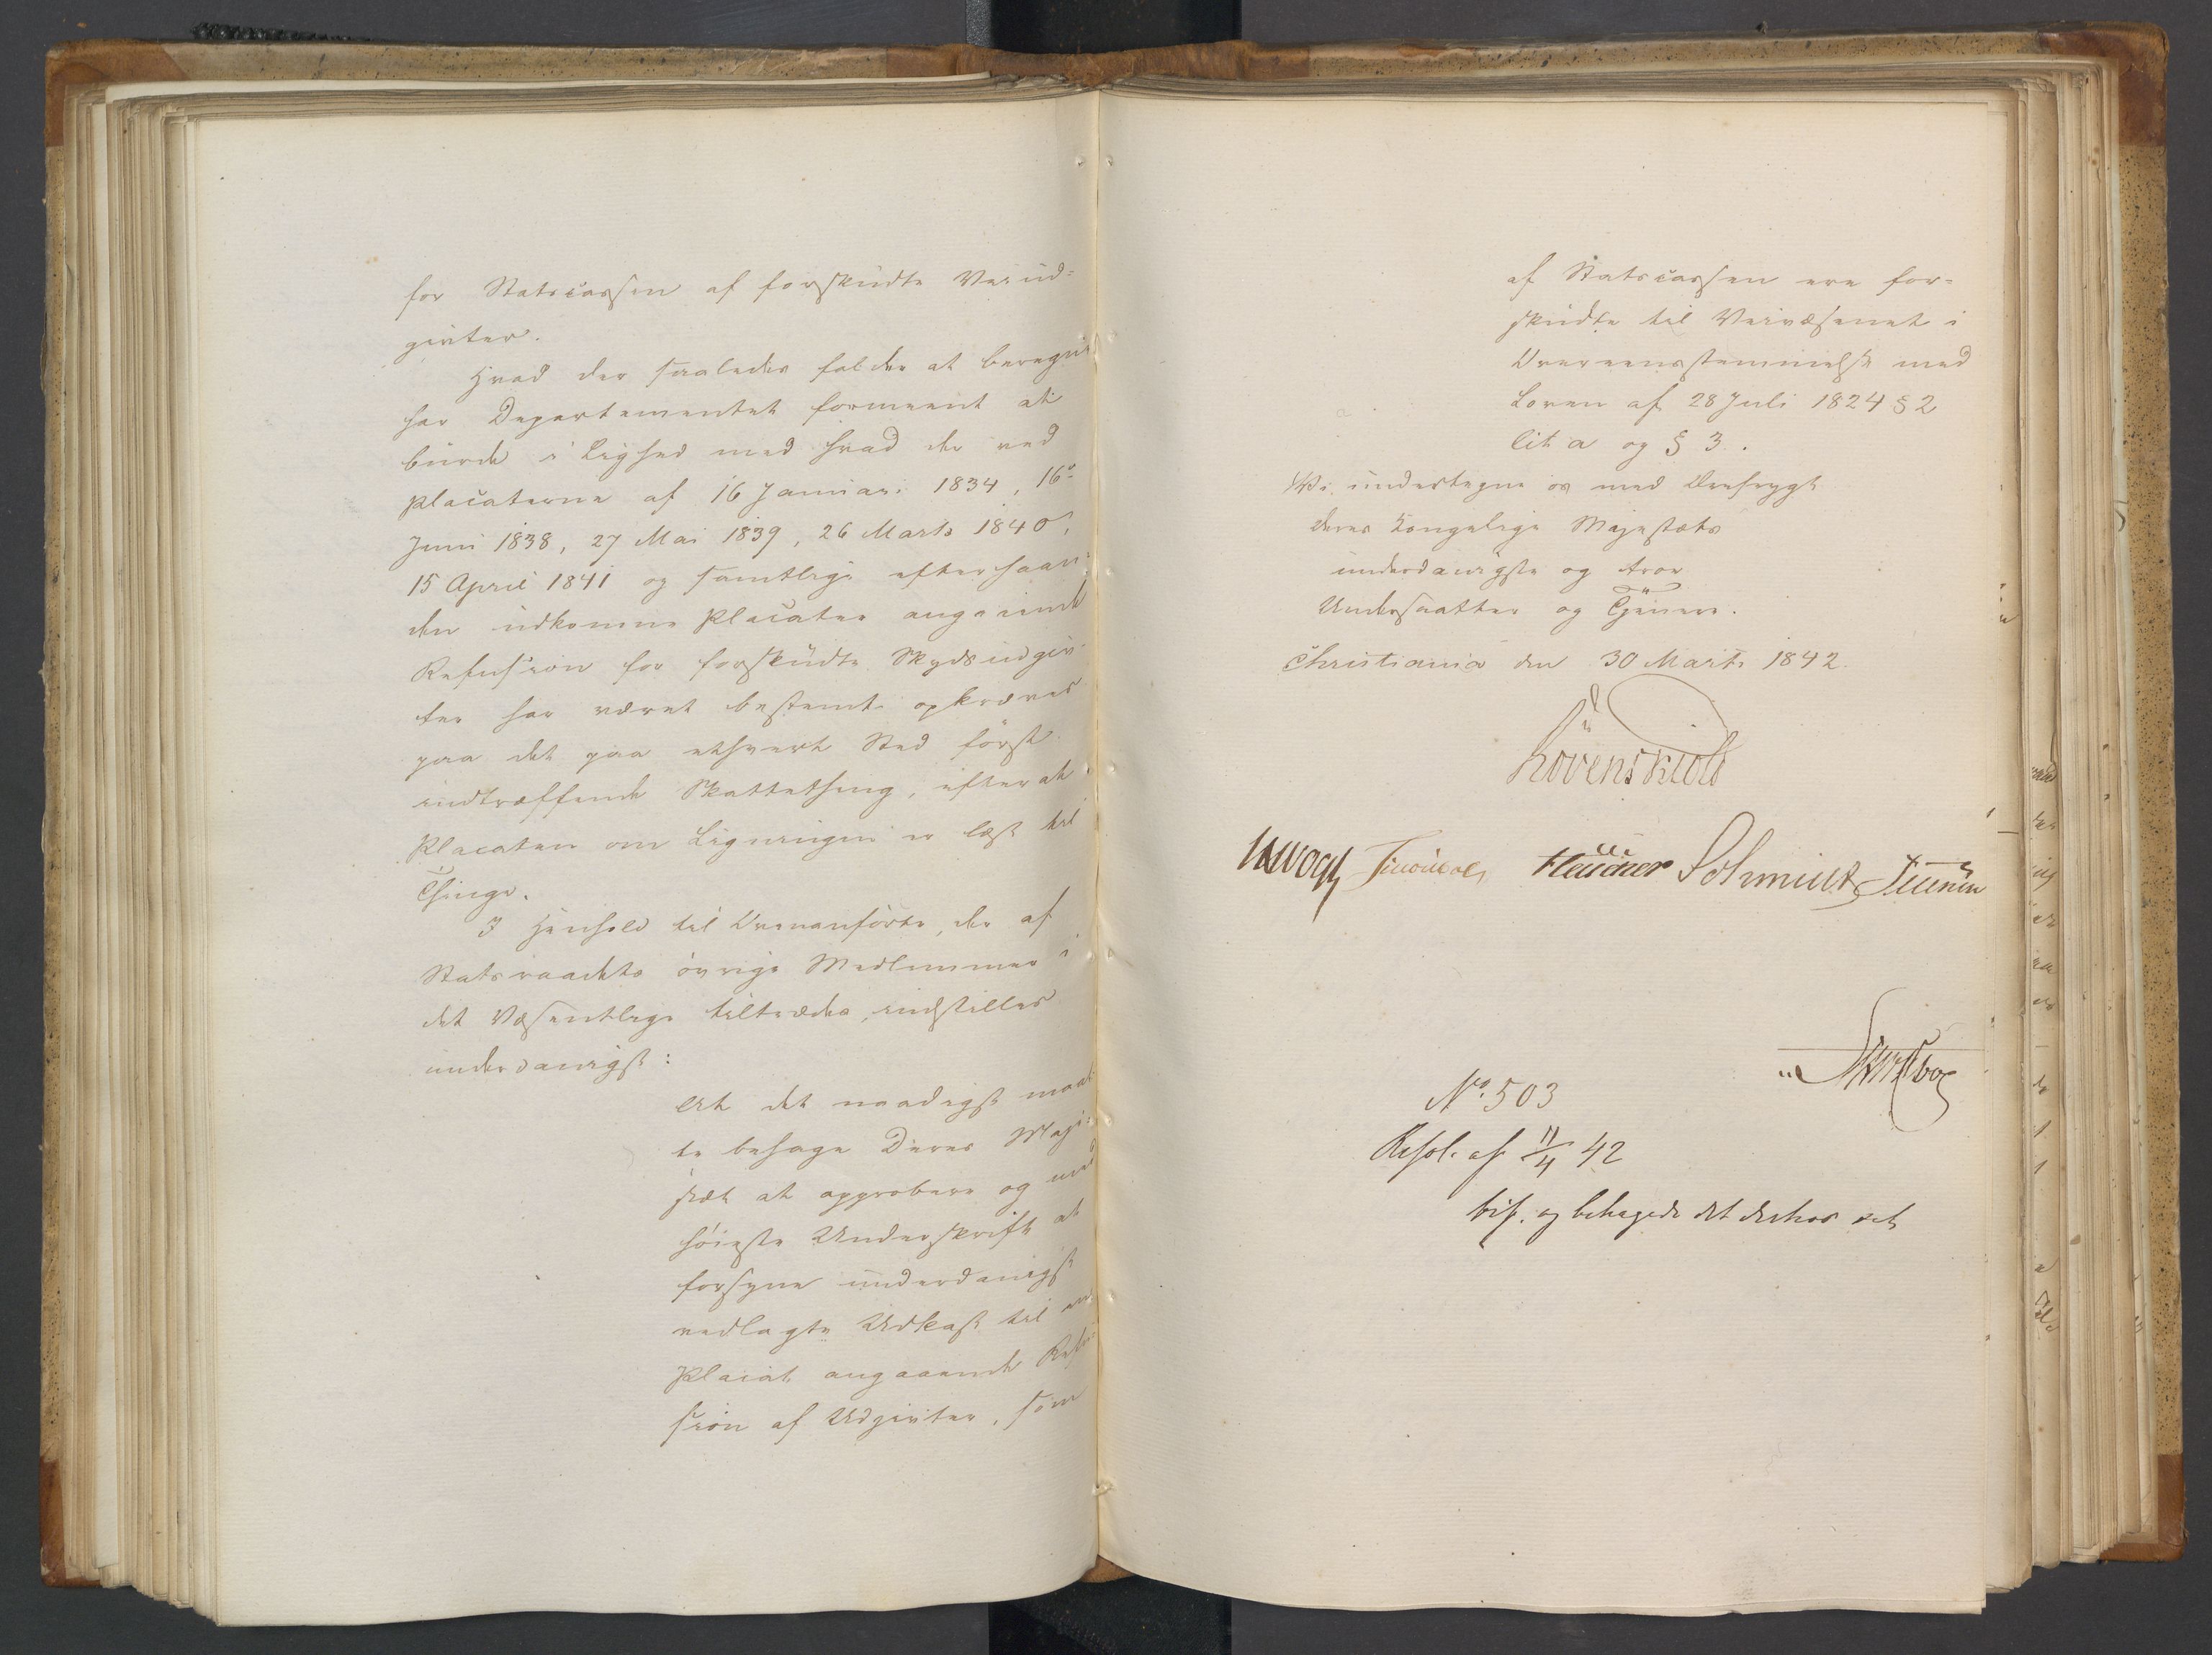 for Statscassen af forskudte Veiud-
givter.
Hvad der saaledes falder at beregne
har Departementet formeent at
burde i Lighed med hvad der ved
Placaterne af 16 Januari 1834, 16de
Juni 1838, 27 Mai 1839, 26 Marts 1840,
15 April 1841 og samtlige efterhaan-
den udkomne Placater angaaende
Refusion for forskudte Skydsudgiv-
ter har været bestemt opkræves
paa det paa ethvert Sted først
indtræffende Skattething, efterat
Placaten om Ligningen er læst til
Thinge.
I Henhold til Ovenanførte, der af
Statsraadets øvrige Medlemmer i
det Væsentlige tiltrædes, indstilles
underdanigst:
At det naadigst maat-
te behage Deres Maje-
stæt at approbere og med
høieste Underskrift at
forsyne underdanigst
vedlagte Udkast til en
Placat angaaende Refu-
sion af Udgivter, som
af Statscassen ere for-
skudte til Veivæsenet i
Overeensstemmelse med
Loven af 28 Juli 1824 § 2
lit a og § 3.
Vi undertegne os med Ærefrygt
Deres Kongelige Majestæts
underdanigste og troe
Undersaatter og Tjenere.
Christiania den 30 Marts 1842.
Løvenskiold
Vogt Schmidt
No. 503
Resol. af 11/4 42
bif. og behagede det derhos